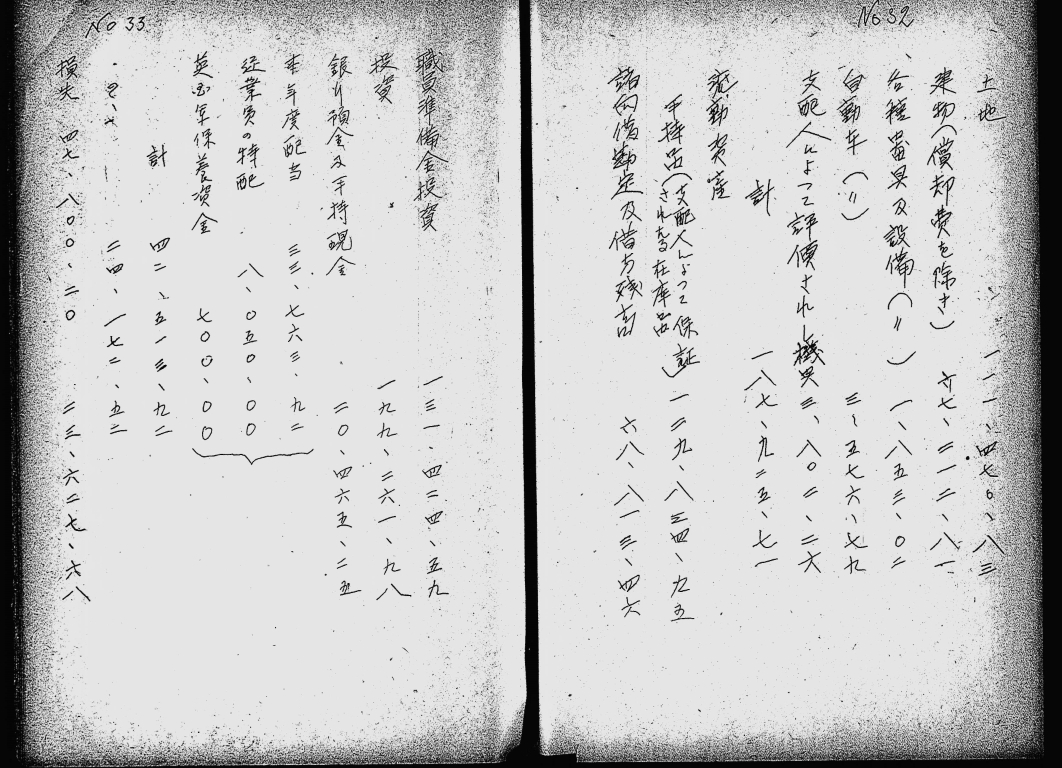 No 32
土地 一一一、四七〇、八三
建物(償却費を除き) 六七、二一二、八一
各種器具及設備(〃) 一、八五三、〇二
自動車(〃) 三、五七六、七九
支配人によって評價され、機具 三、八〇二、二六
計 一八七、九二五、七一
流動資産
手持品(支配人によって保証されたる在庫品) 一二九、八三四、九五
諸的借勘定及借方残高 六八、八一三、四六
No 33
職員準備金投資 一三一、四二四、五九
投資 一九九、二六一、九八
銀行預金及手持現金 二〇、四六五、二五
本年度配当 三三、七六三、九二
従業員の特配 八、〇五〇、〇〇
英国年保養資金 七〇〇、〇〇
計 四二、五一三、九二
二四、一七二、五二
損失 四七、八〇〇、二〇 二三、六二七、六八